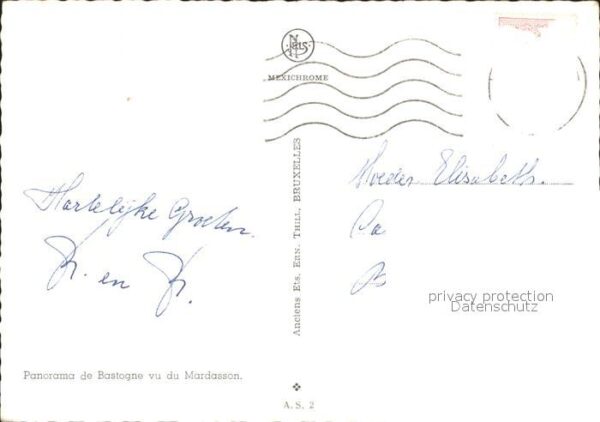 Nels
MEXICHROME
Hartelijke Groeten
K. en K.
Moeder Elisabeth.
Ca
B
privacy protection
Datenschutz
Anciens Ets. Ern. Thill, BRUXELLES
Panorama de Bastogne vu du Mardasson.
A.S. 2